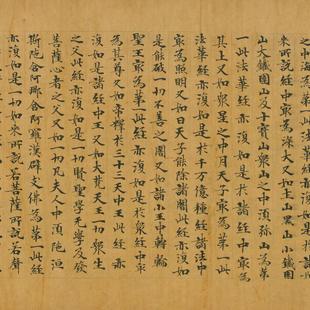 之中海為第一此法華經亦復如是於諸如
來所說經中最為深大又如土山黑山小鐵圍
山大鐵圍山及十寶山眾山之中須弥山為第
一此法華經亦復如是於諸經中最為
其上又如眾星之中月天子最為第一此
法華經亦復如是於千万億種經法中
最為照明又如日天子能除諸闇此經亦復如
是能破一切不善之闇又如諸小王中轉輪
聖王最為第一此經亦復如是於眾經中最
為其尊又如帝釋於三十三天中王此經亦
復如是諸經中王又如大梵天王一切眾生
之父此經亦復如是一切賢聖學无學及發
菩薩心者之父又如一切凡夫人中須陁洹
斯陁含阿那含阿羅漢辟支佛為第一此經
亦復如是一切如來所說若菩薩所說若聲